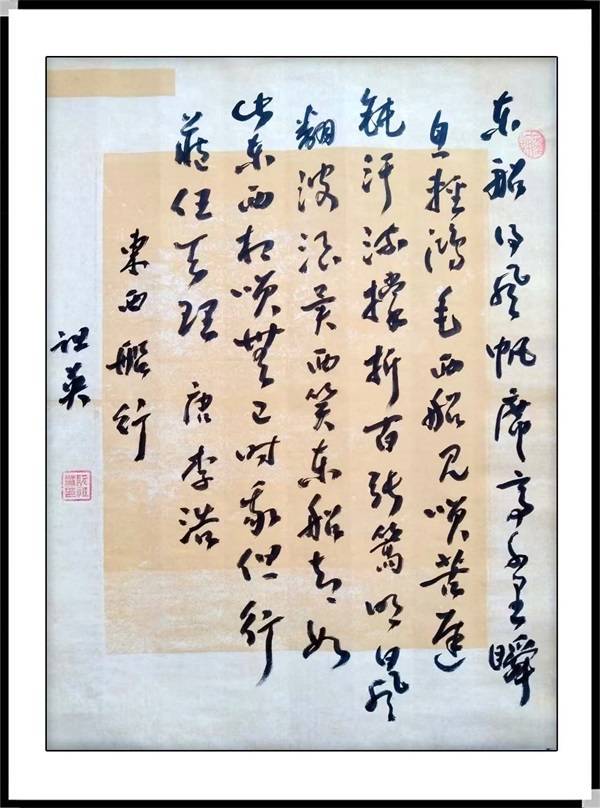 东船得风帆席高千里瞬
息轻鸿毛西船见咲苦迟
钝汗流撑折百张篙明日风
翻波浪异西笑东船却如
此东西相咲無已时我但行
藏任天理 唐李浩
東西船行
祖英